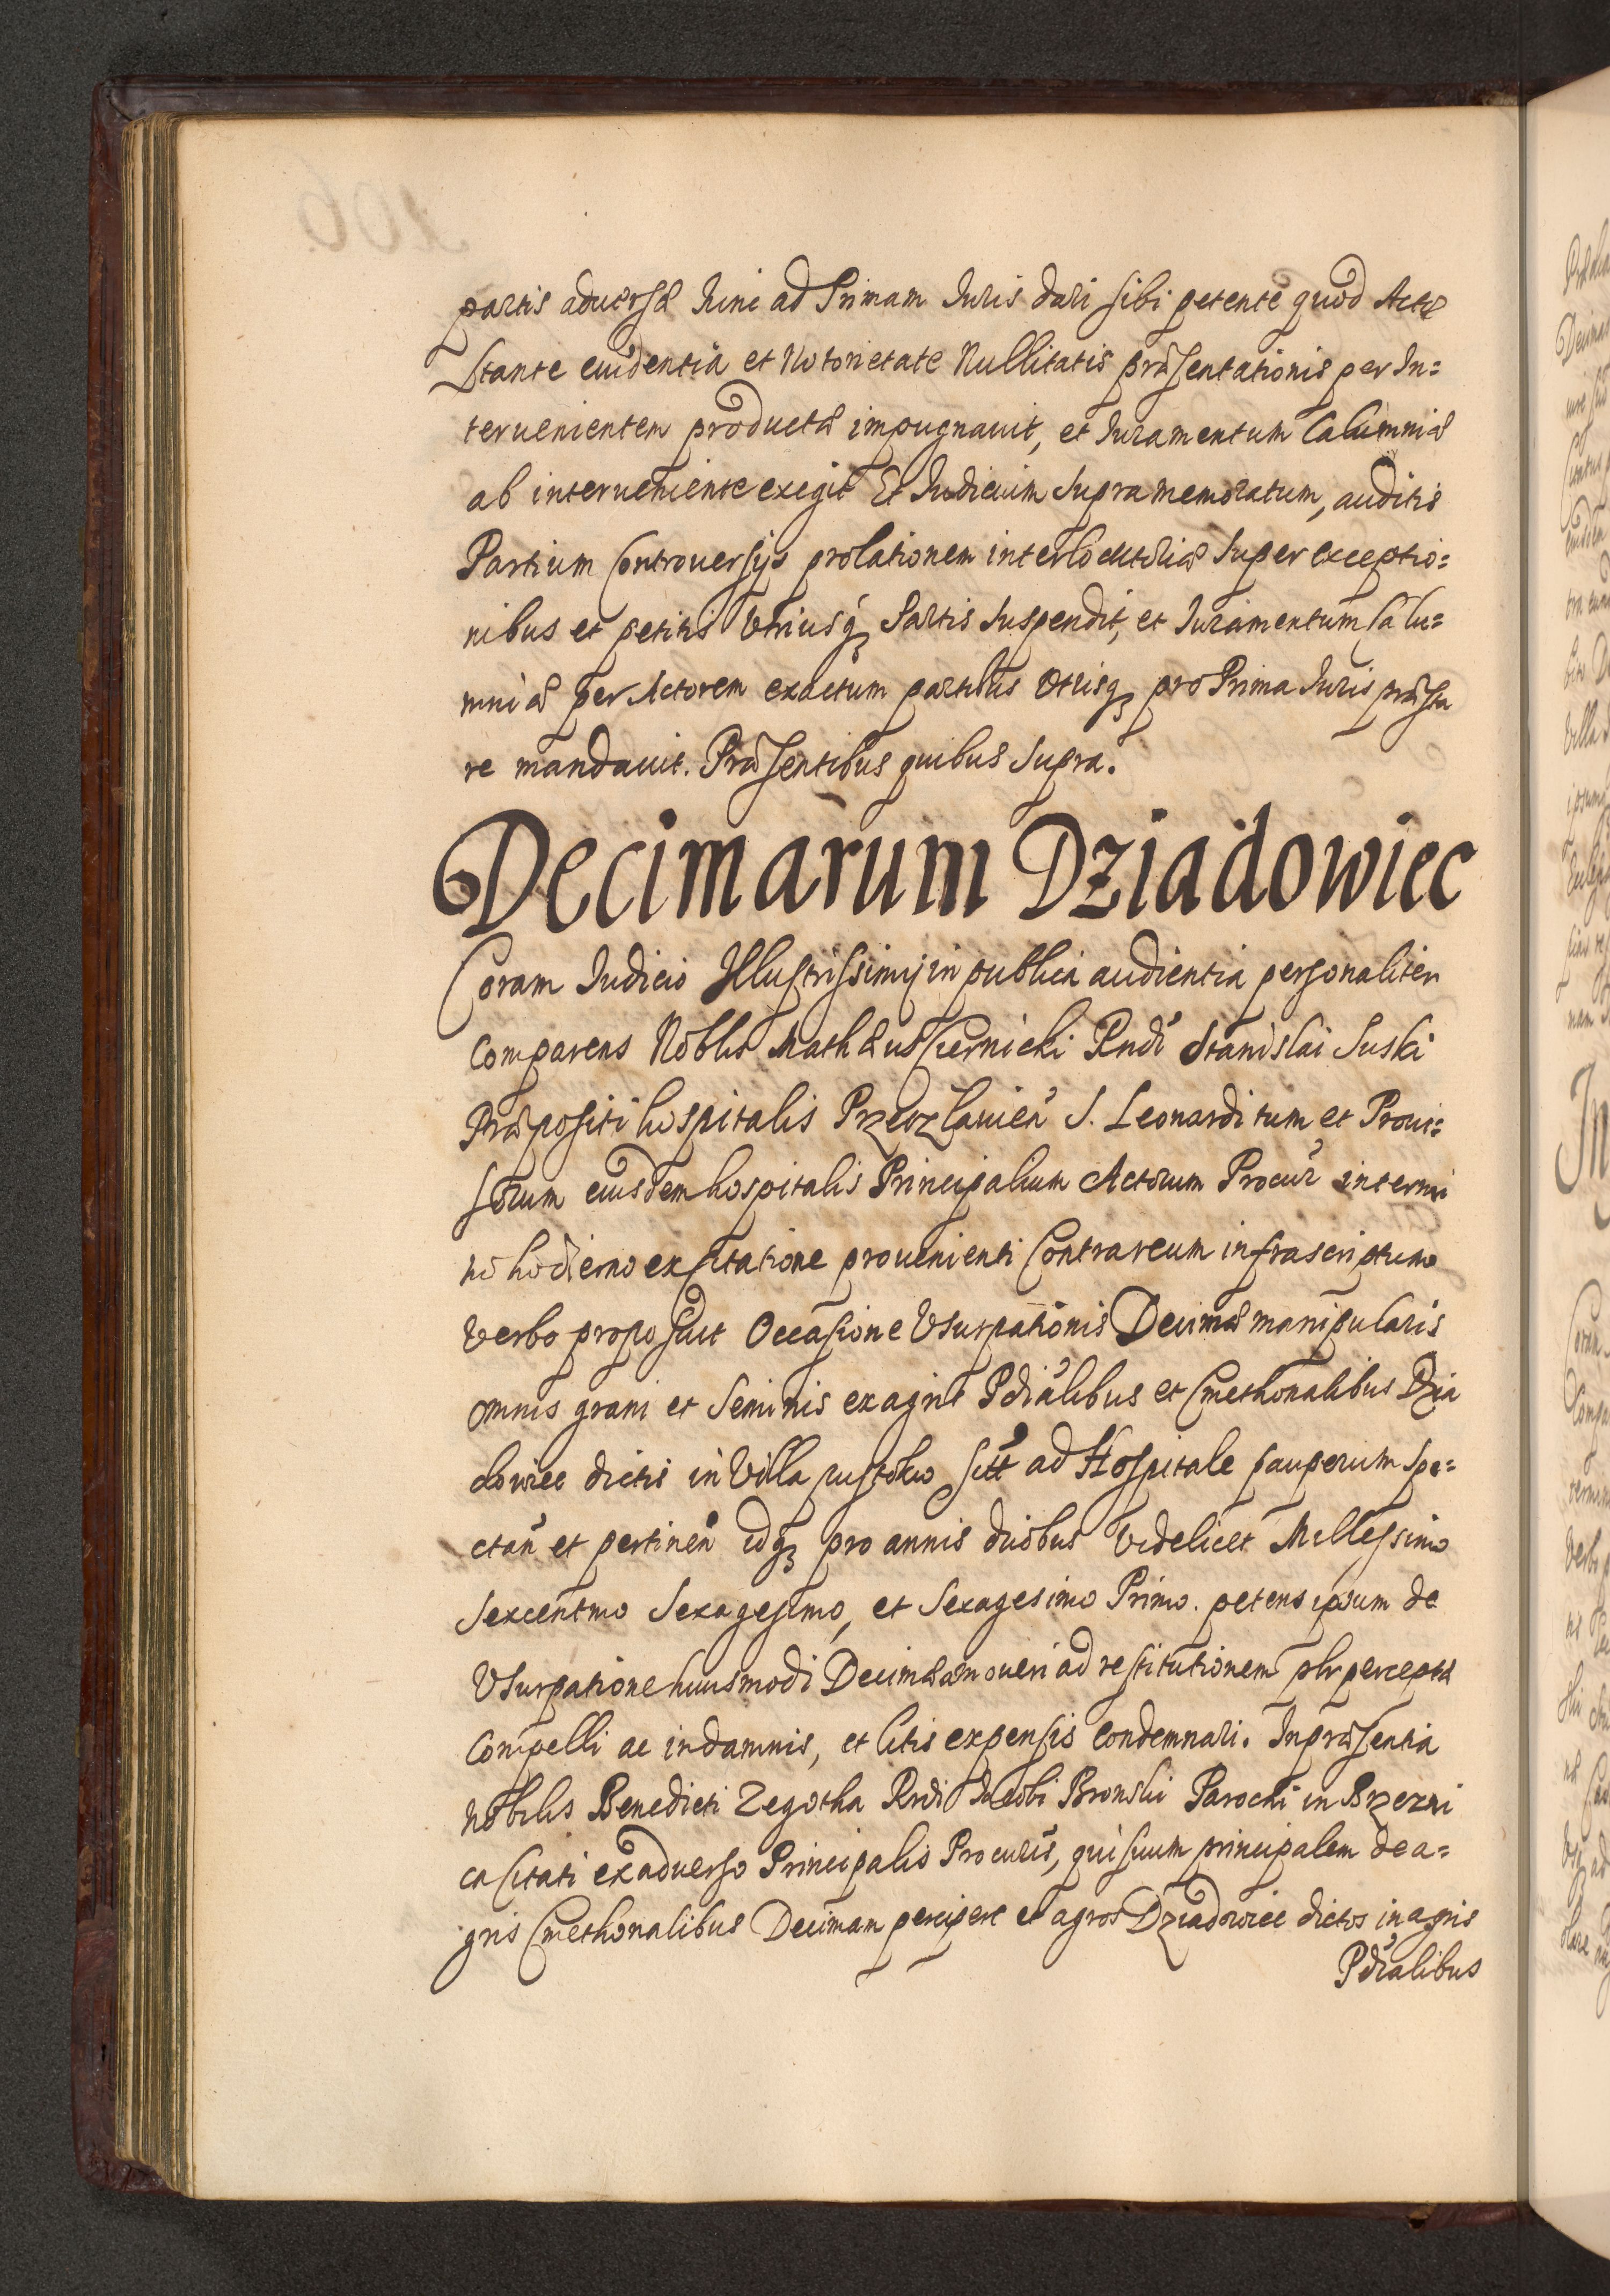 partis aduersæ hinc ad Primam Iuris dari sibi petente quod Actor
Stante euidentia et Notorietate Nullitatis præsentationis per In=
teruenientem productæ impugnauit, et Iuramentum Calumniæ
ab interueniente exegit Et Iudicium supra memoratum, auditis
Partium Controuersijs prolationem interlocutoriæ super exceptio=
nibus et petitis Vtriusq; Partis suspendit, et Iuramentum Calu=
mniæ per Actorem exactum partibus Vtrisq; pro Prima Iuris præsta
re mandauit. Præsentibus quibus supra.
Decimarum Dziadowiec
Coram Iudicio Illustrissimi in publica audientia personaliter
Comparens Nobilis Mathæus Ciernicki Rndi Stanislai Suski
Præpositi hospitalis Brzezlauien S. Leonardi tum et Proui=
sorum eiusdem hospitalis Principalium Actorum Procur in termi
no hodierno ex citatione prouenienti Contra reum infrascriptum
Verbo proposuit Occasione Vsurpationis Decimæ manipularis
omnis grani et Seminis ex agris Pdialibus et Cmethonalibus Dzia
dowiec dictis in Villa sitt ad Hospitale pauperum spe=
ctan et pertinen idq; pro annis duobus Videlicet Millessimo
Sexcentmo Sexagesimo, et Sexagesimo Primo. petens ipsum de
Vsurpatione huiusmodi Decimæ amoueri ad restitutionem plr perceptæ
Compelli ac in damnis, et litis expensis Condemnari. In præsentia
nobilis Benedicti Zegotha Rndi Iacobi Bronski Parochi in Brzezni
ca Citati ex aduerso Principalis Procuris, qui suum principalem de a=
gris Cmethonalibus Decimam percipere et agros Dziadowiec dictos in agris
Pdialibus